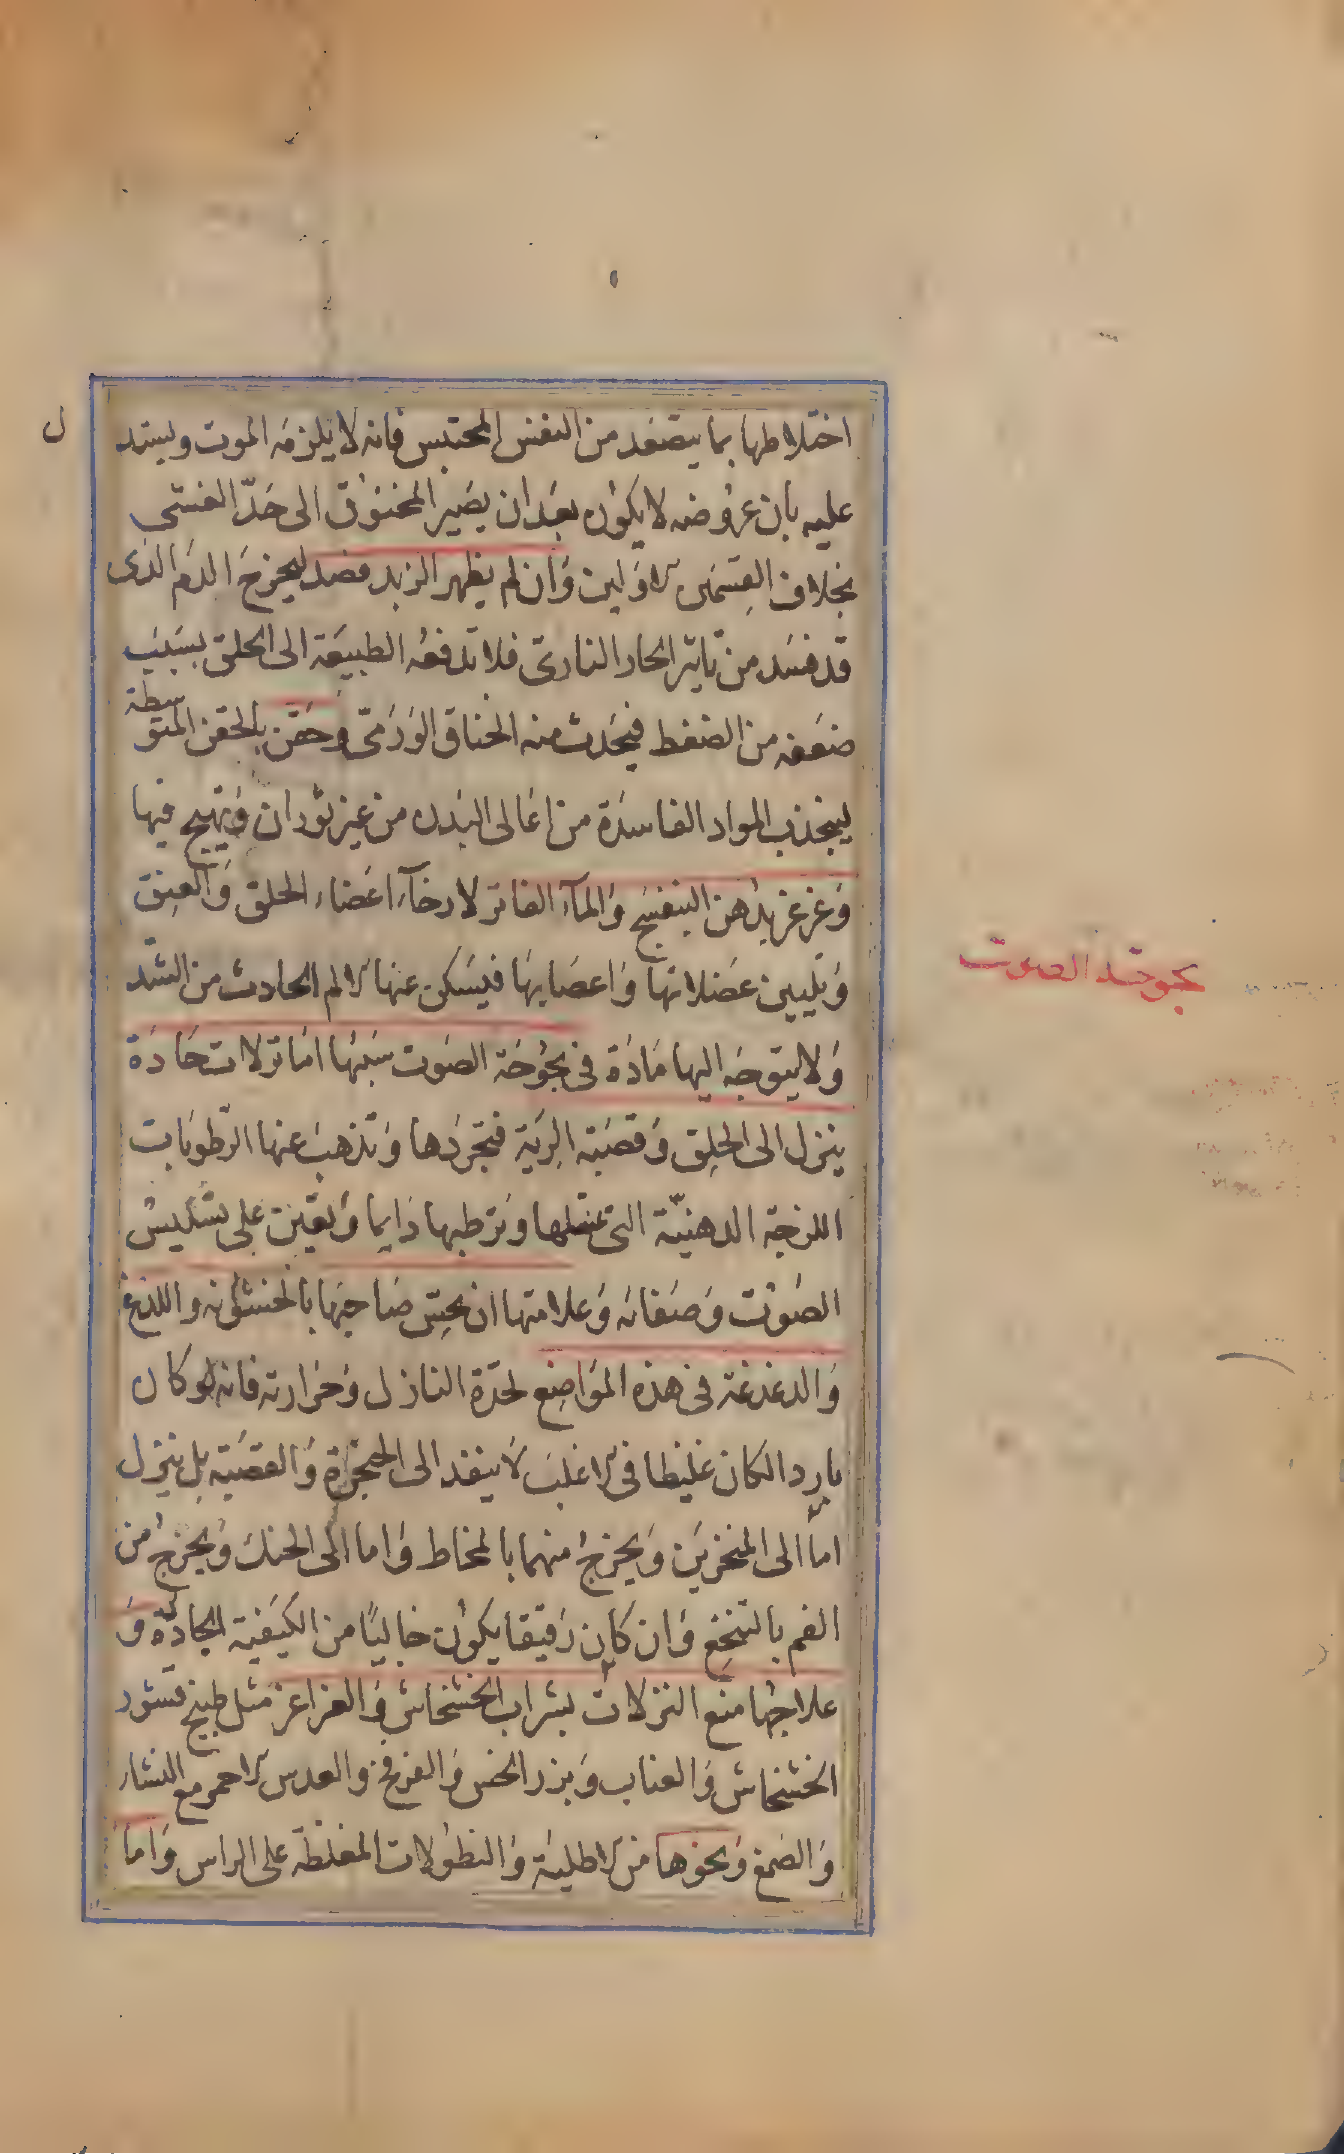 اختلاطها بما يتصعد من النفس المحتبس فانه لا يلزمه الموت ويستد
ل
عليه بان عروضه لا يكون بعد ان يصير المخنوق الى حدّ الغشي
بخلاف القسمين الاولين وان لم يظهر الزبد فصد ليخرج الدم الذى
قد فسد من تاثير الحار النارى فلا تدفعه الطبيعة الى الحلق بسبب
ضعفه من الضغط فيحدث منه الخناق الورمىّ وحقن بالحقن المتوسطة
لينجذب المواد الفاسدة من اعالى البدن من غير ثوران وتهيج فيها
وغرغر بدهن البنفسج والمآء الفاتر لارخآء اعضاء الحلق والعنق
وتليين عضلاتها واعصابها فيسكن عنها الالم الحادث من الشد
بحوحة الصوت
ولا يتوجه اليها مادة فى بحوحة الصوت سببها اما نزلات حادة
ينزل الى الحلق وقصبة الرية فتجردها وتذهب عنها الرطوبات
اللزجة الدهنيّة التى تملسها وترطبها دايما وتعين على تسليس
الصوت وصفائه وعلامتها ان يحس صاحبها بالخشونة واللذع
والدغدغة فى هذه المواضع لحدة النازل وحرارته فانه لو كان
باردا لكان غليظا فى الاغلب لا ينفد الى الحنجرة والقصبة بل ينزل
اما الى المنخرين ويخرج منهما بالمخاط واما الى الحنك ويخرج من
الفم بالتنخع وان كان رقيقا يكون خاليًا من الكيفية الحادّة و
علاجها منع النزلات بشراب الخشخاش والغراغر مثل طبيخ قشور
الخشخاش والعناب وبزر الخس والفرفخ والعدس الاحمر مع النشار
والصمغ ونحوها من الاطلية والنطولات المغلظة على الراس واما